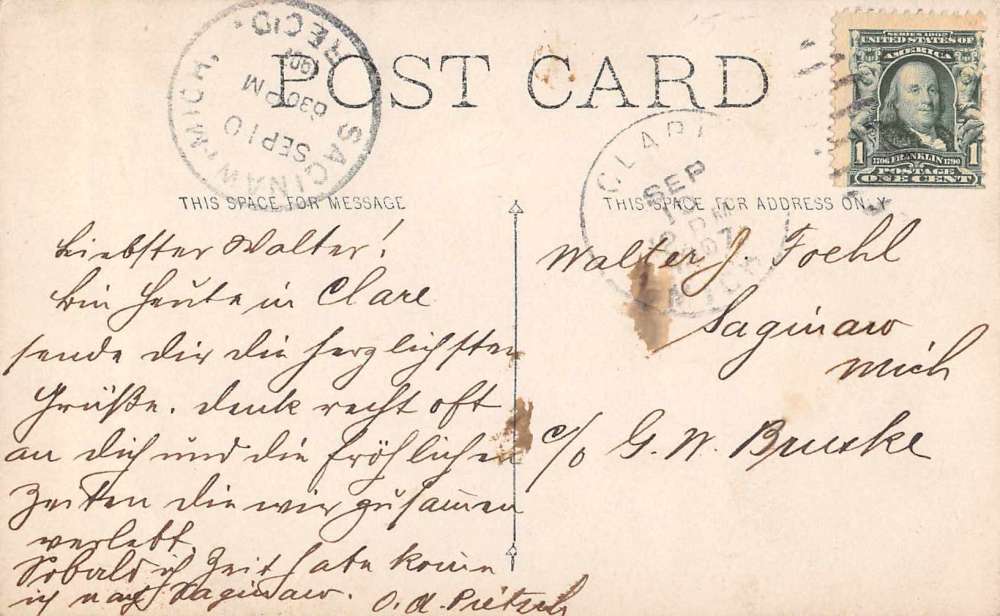 POST CARD
SAGINAW, MICH.
SEP 10
630 PM
1907
REC'D.
CLARE
SEP
10
2 PM
1907
MICH
SERIES 1902
UNITED STATES OF
AMERICA
1 1706 FRANKLIN 1790 1
POSTAGE
ONE CENT
THIS SPACE FOR MESSAGE
Liebster Walter!
Bin heute in Clare
sende dir die herzlichsten
Grüße. Denk recht oft
an dich und die fröhlichen
Zeiten die wir zusammen
verlebt.
Sobald ich Zeit habe komme
ich nach Saginaw. O. A. Pietsch
THIS SPACE FOR ADDRESS ONLY
Walter J. Foehl
Saginaw
Mich
c/o G. W. Bruske